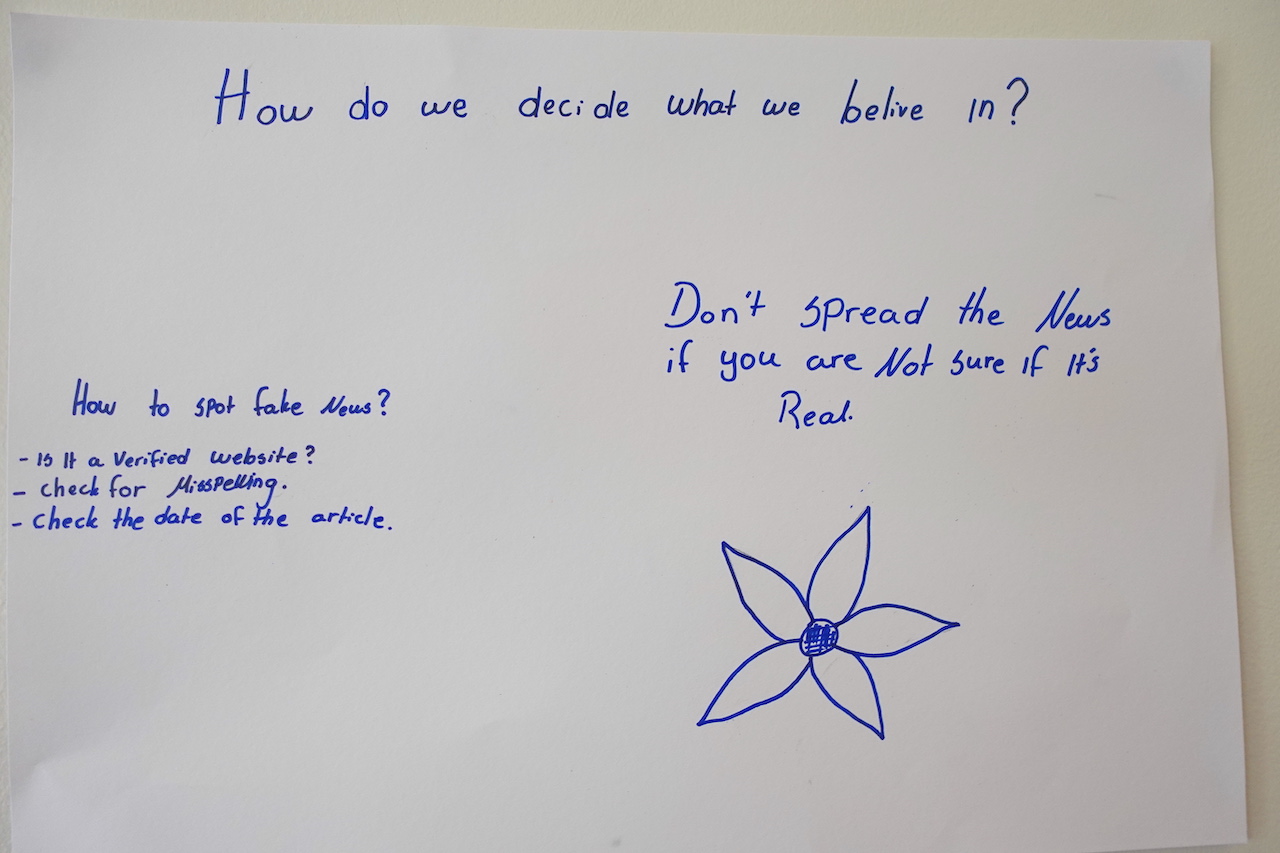 How do we decide what we belive in?
Don't spread the News
if you are Not sure if it's
Real.
How to spot fake News?
- Is It a Verified website?
- check for Misspelling.
- Check the date of the article.